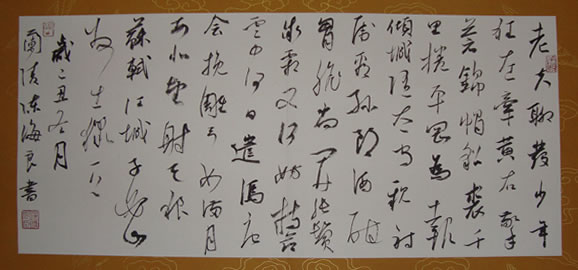 老夫聊發少年
狂左牽黄右擎
蒼錦帽貂裘千
里捲平岡為報
傾城隨太守親射
虎看孫郎酒酣
胸膽尚開張鬢
微霜又何妨持節
雲中何日遣馮唐
会挽雕弓如满月
西北望射天狼
蘇軾江城子
獵
歲己丑冬月
蘭陵陳海良書